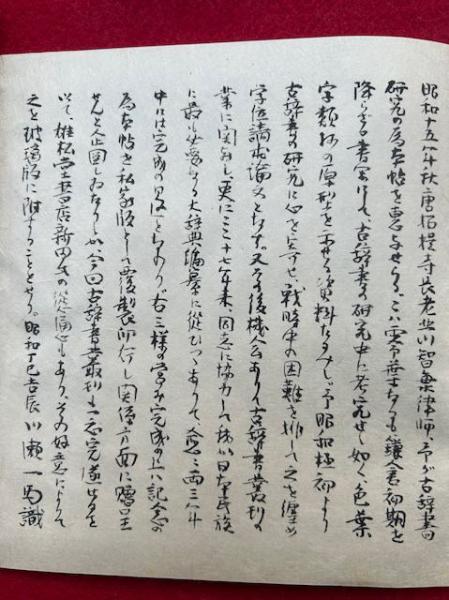 昭和十五年秋、唐招提寺長老北川智象律師、予が古辞書
研究の為本帖を恵与せらる。こハ零本なれども鎌倉初期を
降らざる書写にして、古辞書の研究中に考究せし如く、色葉
字類抄の原型を示せる資料なるべし。予昭和極初より
古辞書の研究に心を寄せ、戦時中の困難を排して之を纏め
学位請求論文となす。又その後機会ありて古辞書叢刊の
業に関与し、更にここ十七年来、同志に協力して我が日本民族
に最も必要なる大辞典編纂に従ひつつありて、今や両三年
中には完成の見込となれり。右三様の営み完成の上ハ記念の
為本帖を私家版として覆製印行し関係方面に贈呈
せんと企図しゐたりしが、今回古辞書叢刊も一応完遂せるを
以て、雄松堂書店新田氏の慫慂もあり、その好意によりて
之を玻璃版に附することとせり。昭和丁巳吉辰 川瀬一馬識